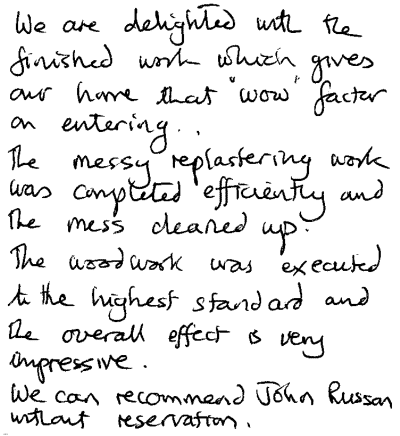 We are delighted with the
finished work which gives
our home that "wow" factor
on entering..
The messy replastering work
was completed efficiently and
the mess cleaned up.
The woodwork was executed
to the highest standard and
the overall effect is very
impressive.
We can recommend John Russan
without reservation.